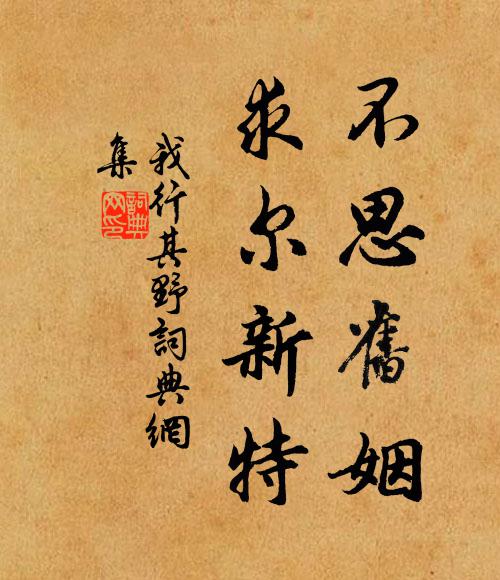 不思舊姻
求尔新特
我行其野詞典網
集
詞典
網印